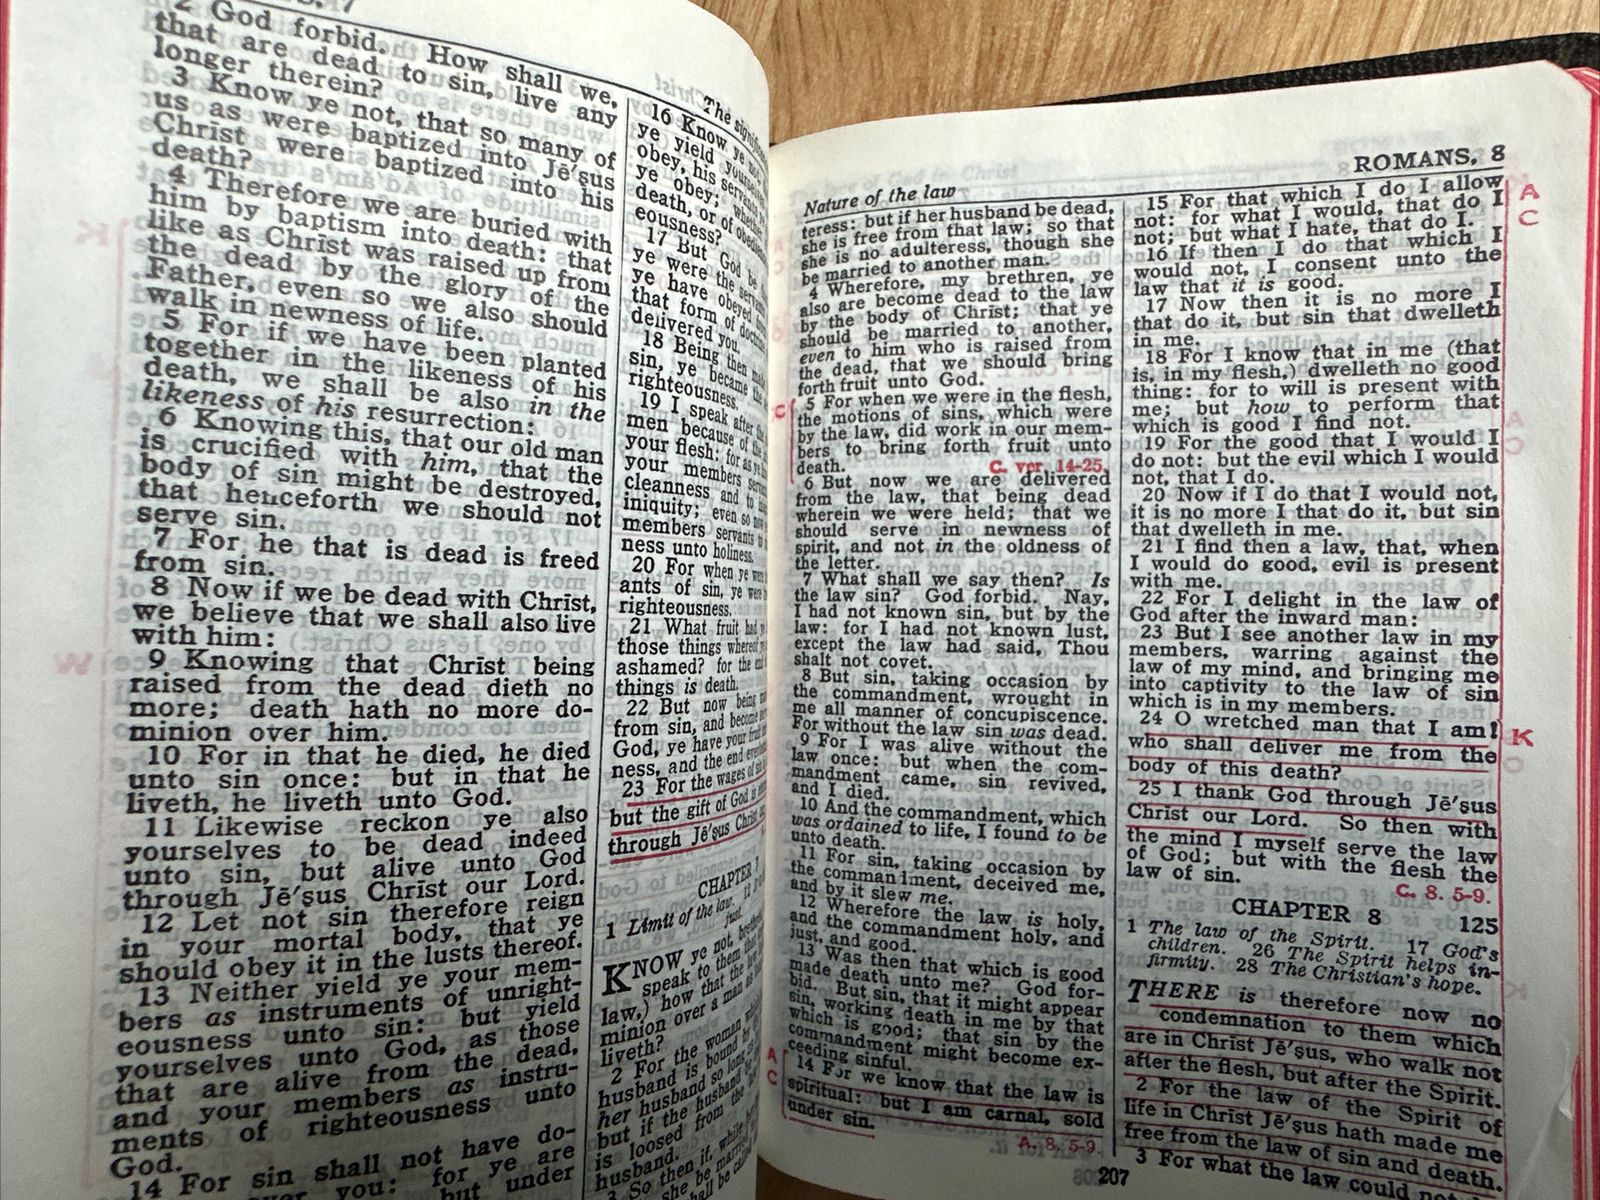 2 God forbid. How shall we,
that are dead to sin, live any
longer therein?
3 Know ye not, that so many of
us as were baptized into Jē′ṣus
Christ were baptized into his
death?
4 Therefore we are buried with
him by baptism into death: that
like as Christ was raised up from
the dead by the glory of the
Father, even so we also should
walk in newness of life.
5 For if we have been planted
together in the likeness of his
death, we shall be also in the
likeness of his resurrection:
6 Knowing this, that our old man
is crucified with him, that the
body of sin might be destroyed,
that henceforth we should not
serve sin.
7 For he that is dead is freed
from sin.
8 Now if we be dead with Christ,
we believe that we shall also live
with him:
9 Knowing that Christ being
raised from the dead dieth no
more; death hath no more do-
minion over him.
10 For in that he died, he died
unto sin once: but in that he
liveth, he liveth unto God.
11 Likewise reckon ye also
yourselves to be dead indeed
unto sin, but alive unto God
through Jē′ṣus Christ our Lord.
12 Let not sin therefore reign
in your mortal body, that ye
should obey it in the lusts thereof.
13 Neither yield ye your mem-
bers as instruments of unright-
eousness unto sin: but yield
yourselves unto God, as those
that are alive from the dead,
and your members as instru-
ments of righteousness unto
God.
14 For sin shall not have do-
you: for ye are
but under
The
16 Know ye
ye yield
obey, his
ye obey; whether
death, or of
eousness?
17 But God be
ye were the
ye have obeyed
that form of
delivered you.
18 Being then
sin, ye became the
righteousness.
19 I speak after the
men because of the
your flesh: for as ye
your members
cleanness and to
iniquity; even so
members servants to
ness unto holiness.
20 For when ye were
ants of sin, ye were
righteousness.
21 What fruit had
those things
ashamed? for the end
things is death.
22 But now being
from sin, and become
God, ye have your fruit
ness, and the end
23 For the wages of
but the gift of God is
through Jē′ṣus Christ
CHAPTER 7
1 Limit of the law.
just.
KNOW ye not,
speak to them that
law,) how that the law
minion over a man as
liveth?
2 For the woman
husband is bound by
her husband so long
but if the husband be
is loosed from the
husband.
3 So then if, while
she be married
be
Nature of the law
teress: but if her husband be dead,
she is free from that law; so that
she is no adulteress, though she
be married to another man.
4 Wherefore, my brethren, ye
also are become dead to the law
by the body of Christ; that ye
should be married to another,
even to him who is raised from
the dead, that we should bring
forth fruit unto God.
C 5 For when we were in the flesh,
the motions of sins, which were
by the law, did work in our mem-
bers to bring forth fruit unto
death. C. ver. 14-25.
6 But now we are delivered
from the law, that being dead
wherein we were held; that we
should serve in newness of
spirit, and not in the oldness of
the letter.
7 What shall we say then? Is
the law sin? God forbid. Nay,
I had not known sin, but by the
law: for I had not known lust,
except the law had said, Thou
shalt not covet.
8 But sin, taking occasion by
the commandment, wrought in
me all manner of concupiscence.
For without the law sin was dead.
9 For I was alive without the
law once: but when the com-
mandment came, sin revived,
and I died.
10 And the commandment, which
was ordained to life, I found to be
unto death.
11 For sin, taking occasion by
the commandment, deceived me,
and by it slew me.
12 Wherefore the law is holy,
and the commandment holy, and
just, and good.
13 Was then that which is good
made death unto me? God for-
bid. But sin, that it might appear
sin, working death in me by that
which is good; that sin by the
commandment might become ex-
ceeding sinful.
A 14 For we know that the law is
C spiritual: but I am carnal, sold
under sin.
A. 8, 5-9.
ROMANS, 8
15 For that which I do I allow A
not: for what I would, that do I C
not; but what I hate, that do I.
16 If then I do that which I
would not, I consent unto the
law that it is good.
17 Now then it is no more I
that do it, but sin that dwelleth
in me.
18 For I know that in me (that
is, in my flesh,) dwelleth no good
thing: for to will is present with
me; but how to perform that
which is good I find not.
19 For the good that I would I
do not: but the evil which I would
not, that I do.
20 Now if I do that I would not,
it is no more I that do it, but sin
that dwelleth in me.
21 I find then a law, that, when
I would do good, evil is present
with me.
22 For I delight in the law of
God after the inward man:
23 But I see another law in my
members, warring against the
law of my mind, and bringing me
into captivity to the law of sin
which is in my members.
24 O wretched man that I am! K
who shall deliver me from the
body of this death?
25 I thank God through Jē′ṣus
Christ our Lord. So then with
the mind I myself serve the law
of God; but with the flesh the
law of sin.
C. 8. 5-9.
CHAPTER 8 125
1 The law of the Spirit. 17 God's
children. 26 The Spirit helps in-
firmity. 28 The Christian's hope.
THERE is therefore now no
condemnation to them which
are in Christ Jē′ṣus, who walk not
after the flesh, but after the Spirit.
2 For the law of the Spirit of
life in Christ Jē′ṣus hath made me
free from the law of sin and death.
3 For what the law could
207